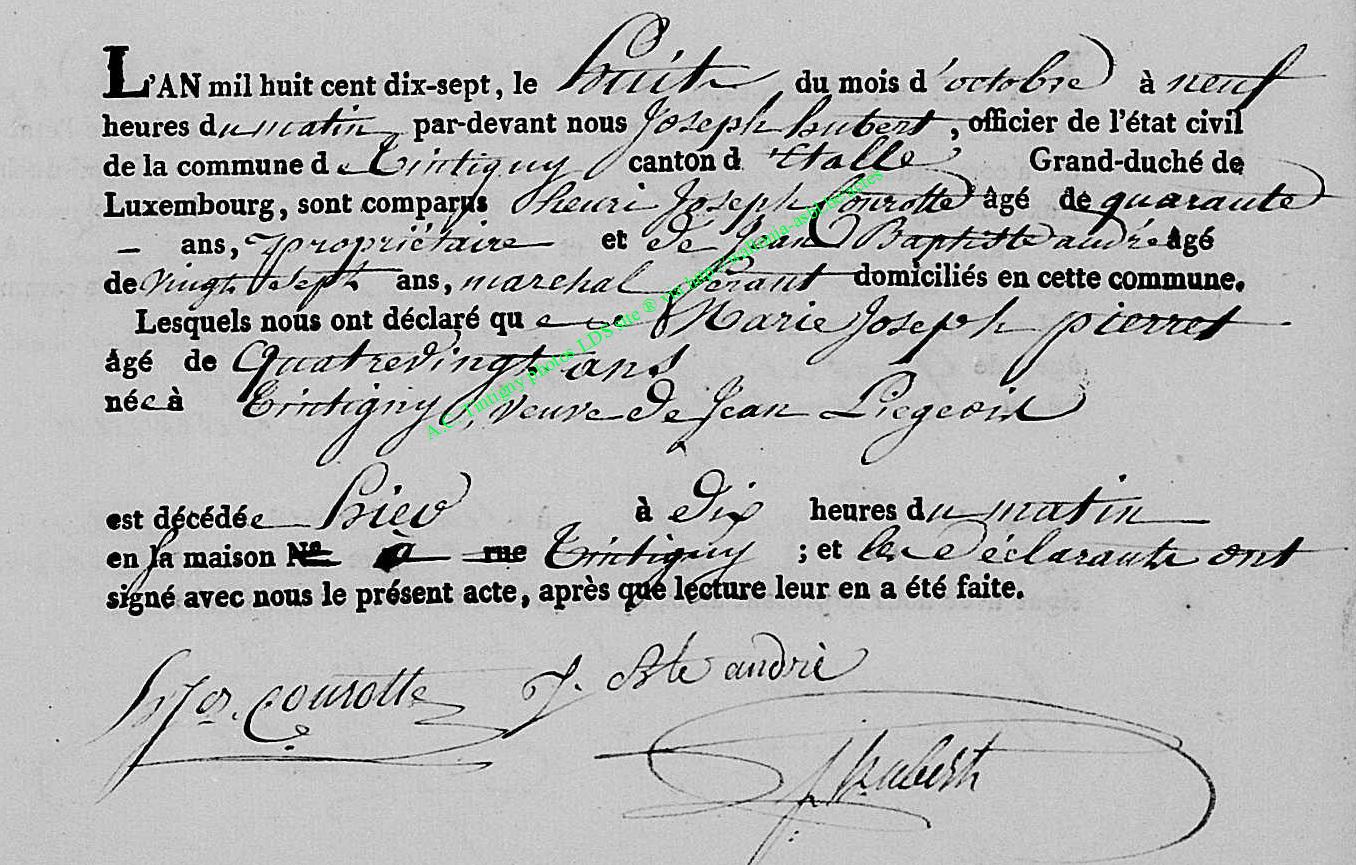 L'AN mil huit cent dix-sept, le huit du mois d'octobre à neuf
heures du matin par-devant nous Joseph hubert, officier de l'état civil
de la commune de Tintigny canton d'Etalle Grand-duché de
Luxembourg, sont comparus henri Joseph Courotte âgé de quarante
— ans, propriétaire et de Jean Baptiste andré âgé
de vingt sept ans, marchal ferant domiciliés en cette commune.
Lesquels nous ont déclaré que Marie Joseph pierret
âgé de Quatrevingt ans
née à Tintigny, veuve de Jean Liegeois
est décédée hier à dix heures du matin
en sa maison No à rue Tintigny ; et les déclarants ont
signé avec nous le présent acte, après que lecture leur en a été faite.
hJos. Courotte J. Bte andré
J hubert
A.C. Tintigny photos LDS site ® via http://wallonia-asbl.be/actes